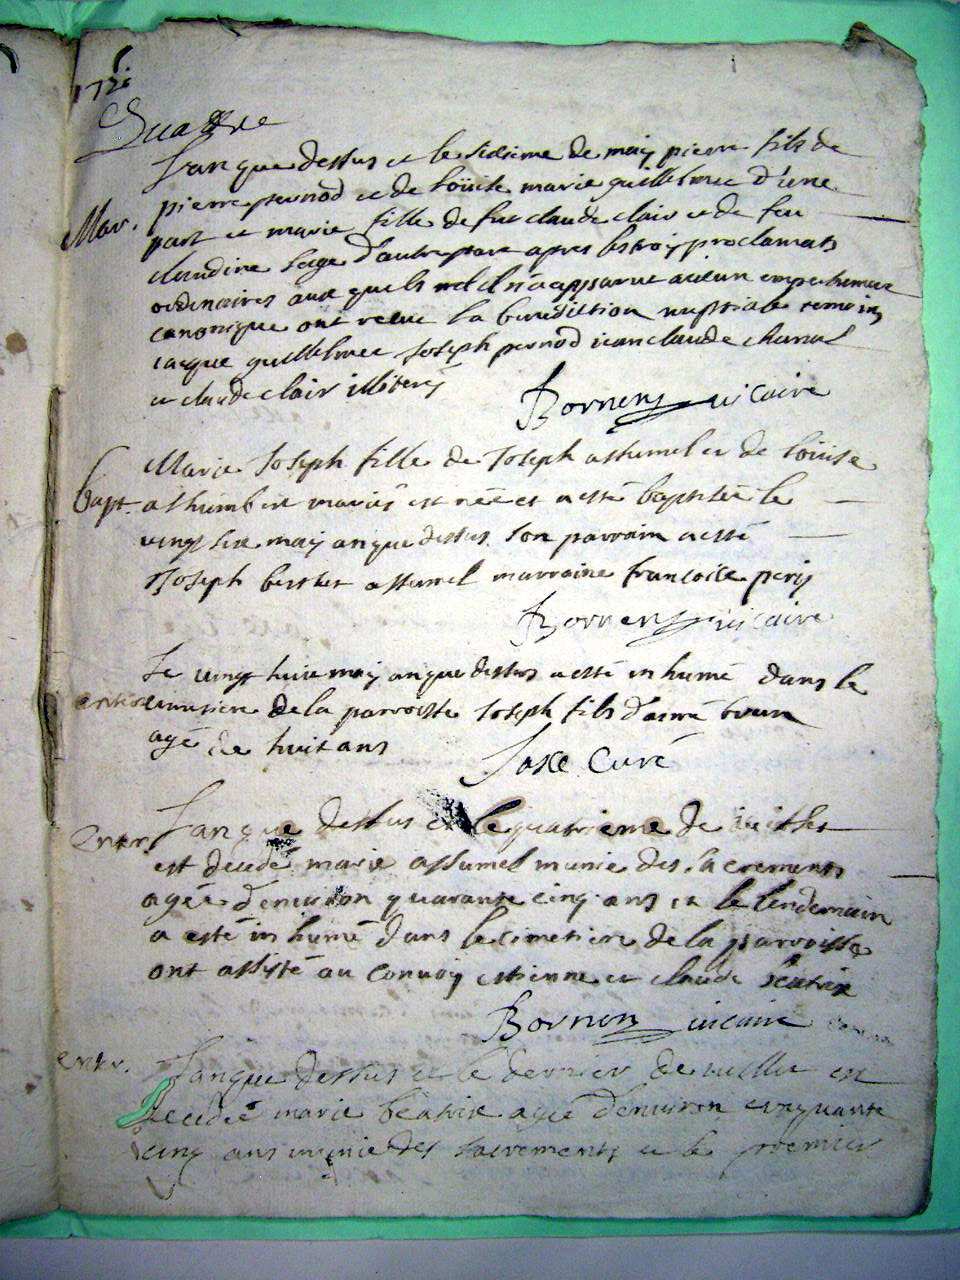 172
L'an que dessus et le sidsime de maij pierre fils de
Mar. pierre pernod et de loüise marie guillhmee d'une
part et marie fille de feu claude clair et de feu
claudine d'autre part apres les trois proclamats
ordinaires aux quels il n'a apparut aucun empechement
canonique ont receu la benediction nuptiale temoins
iacque guillhmee Joseph pernod iean claude
et claude clair illiterés
Bornens vicaire
Marie Joseph fille de Joseph assumel et de loüise
bapt. mariés est née et a esté baptisée le
vingt six maij an que dessus son parrain a esté
Joseph assumel marraine francoise perij
Bornens vicaire
Le vingt huit maij an que dessus a esté inhumé dans le
enter cimitiere de la parroisse Joseph fils d'aimé brun
agé de huit ans
Curé
enter. L'an que dessus et le quatrieme de
est decedé marie assumel munie des sacrements
agée d'environ quarante cinq ans et le lendemain
a esté inhumé dans le cimetiere de la parroisse
ont assisté au convoij estienne et claude beatrix
Bornens vicaire
enter. L'an que dessus et le dernier de est
decedée marie beatrix agé d'environ cinquante
cinq ans munie des sacrements et le premier